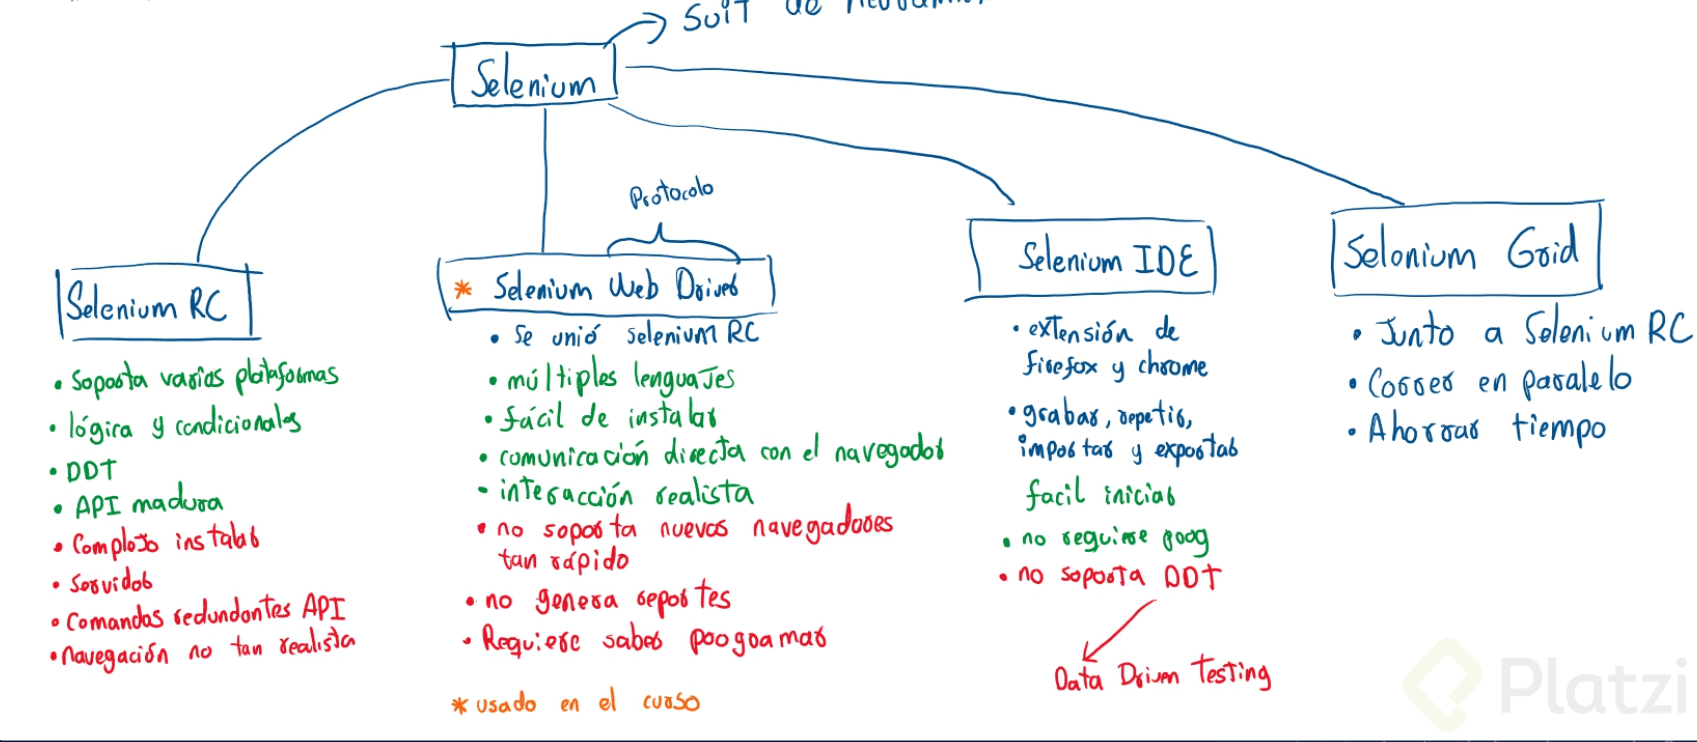 Suit de
Selenium
Protocolo
Selenium RC
• Soporta varias plataformas
• lógica y condicionales
• DDT
• API madura
• Complejo instalar
• Servidor
• Comandos redundantes API
• navegación no tan realista
* Selenium Web Driver
• Se unió selenium RC
• múltiples lenguajes
• fácil de instalar
• comunicación directa con el navegador
• interacción realista
• no soporta nuevos navegadores
tan rápido
• no genera reportes
• Requiere saber programar
* usado en el curso
Selenium IDE
• extensión de
firefox y chrome
• grabar, repetir,
importar y exportar
facil iniciar
• no requiere prog
• no soporta DDT
Data Driven Testing
Selenium Grid
• Junto a Selenium RC
• Correr en paralelo
• Ahorrar tiempo
Platzi